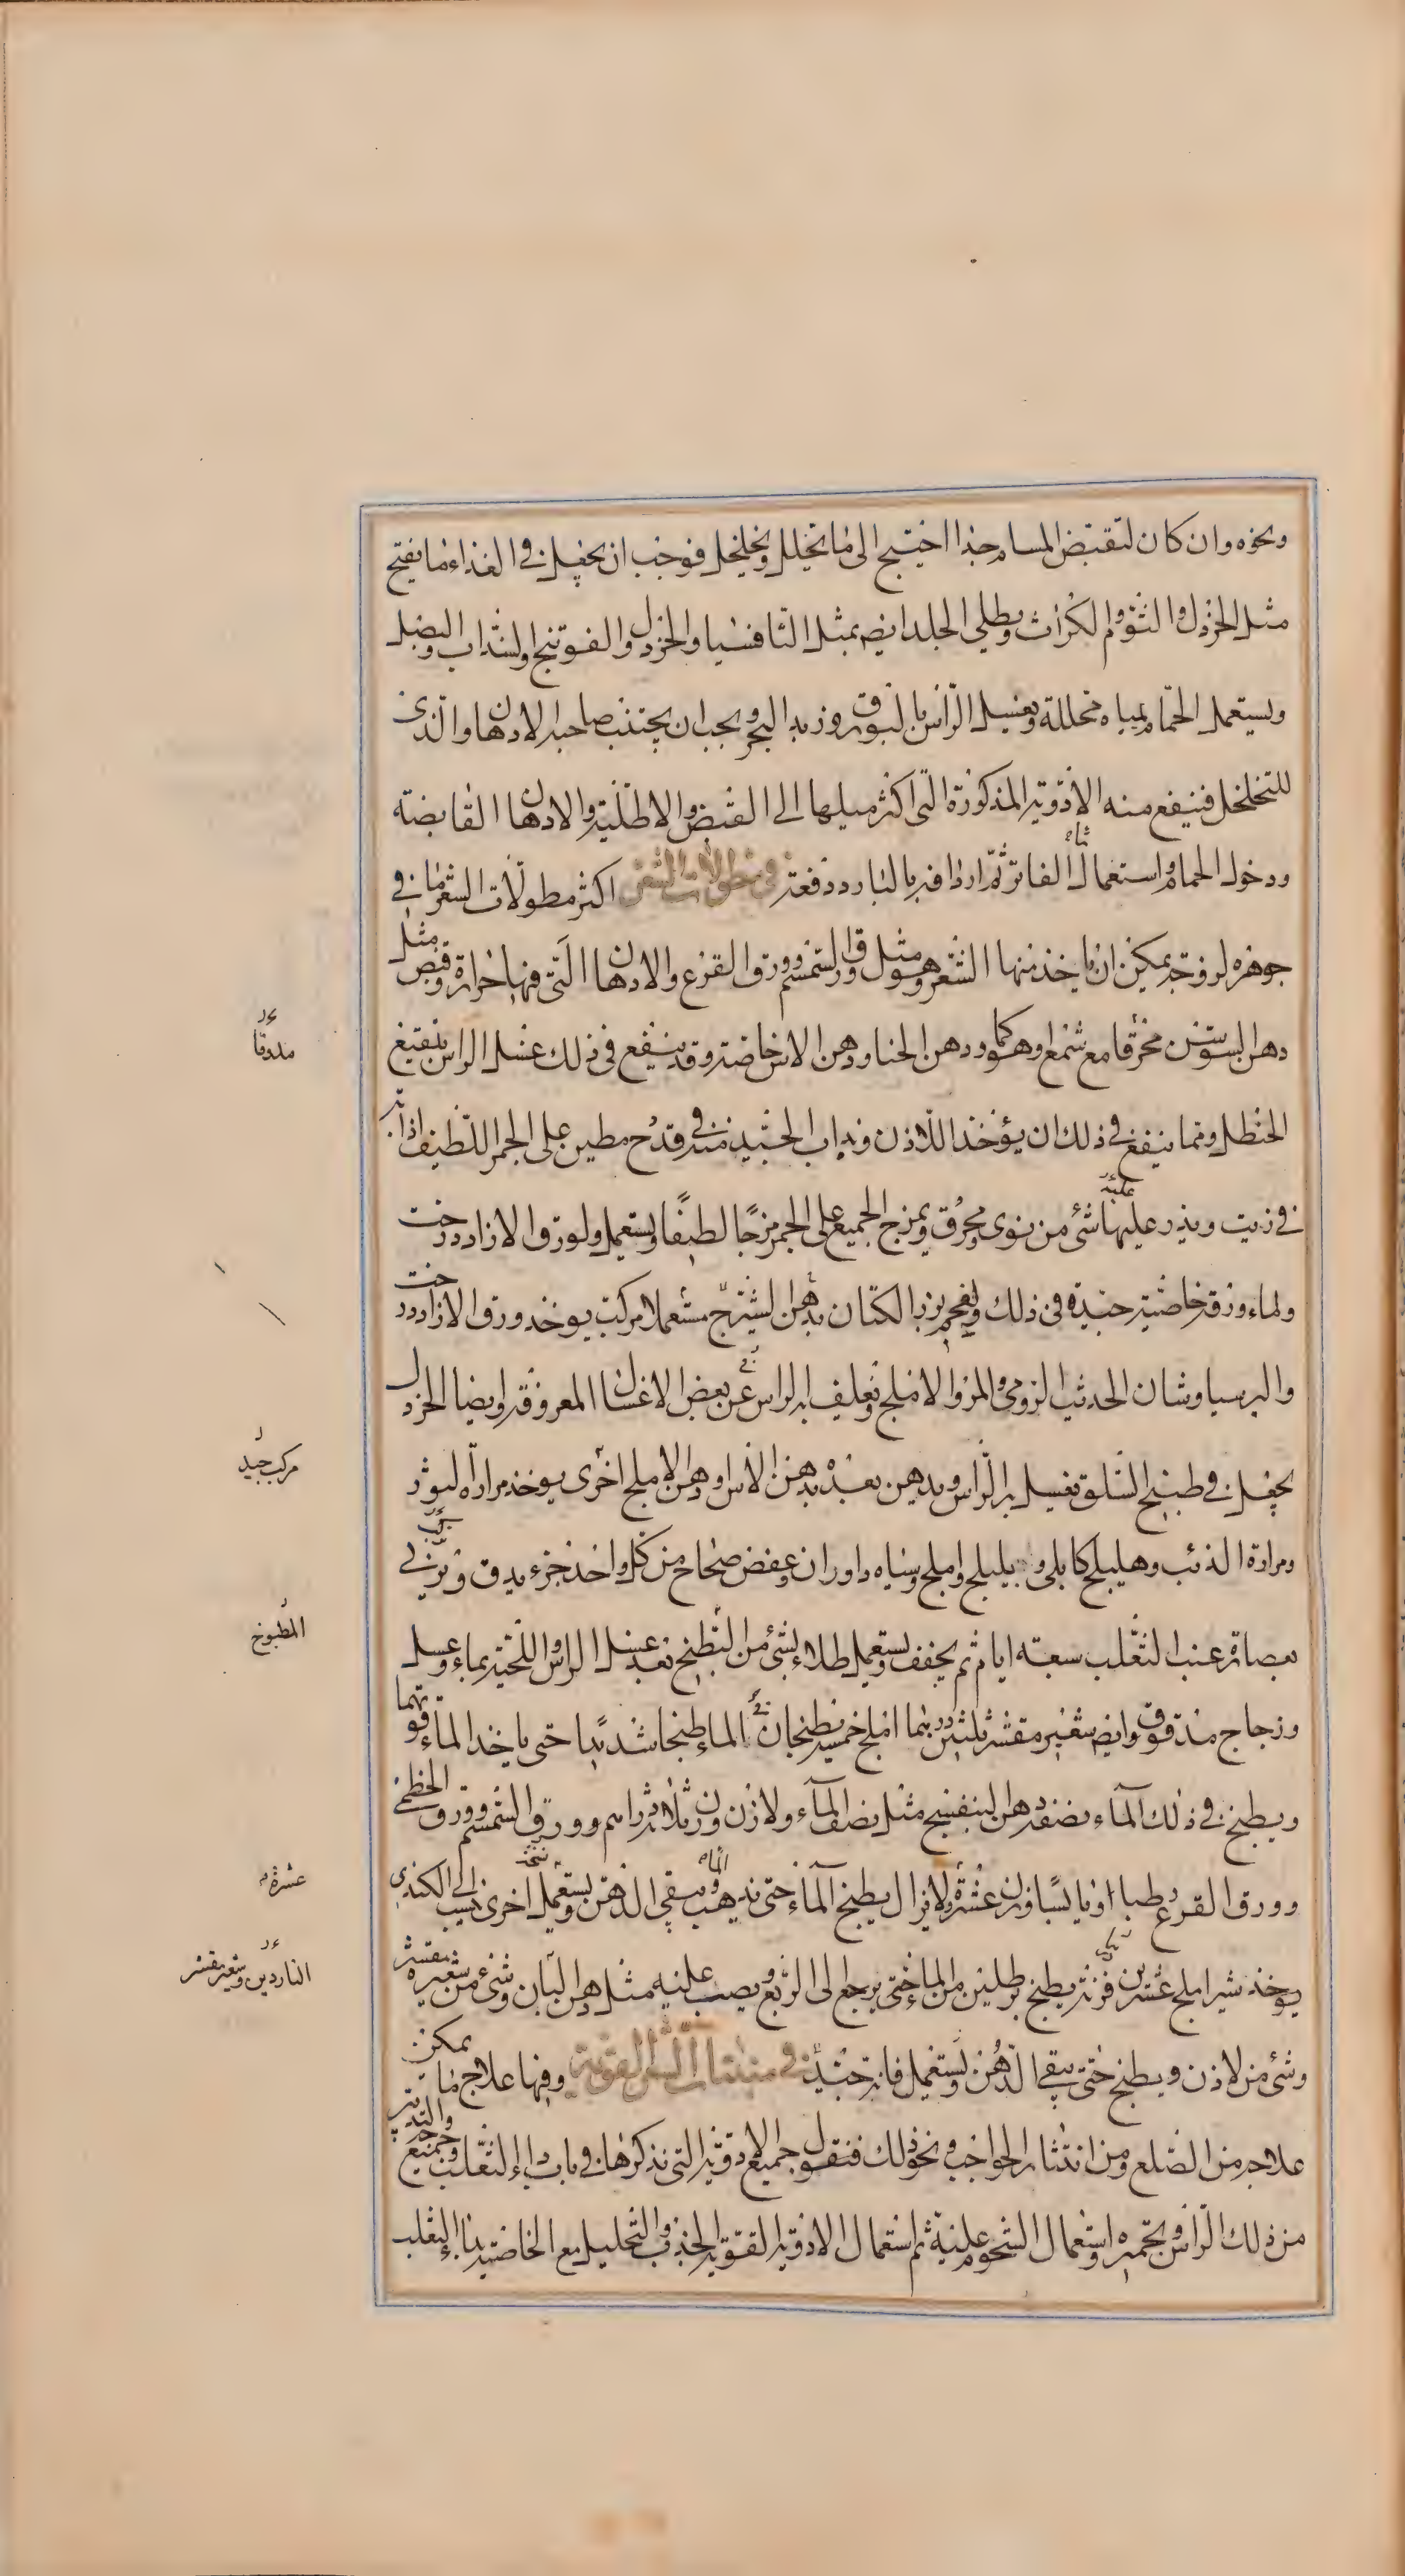 ونحوه وان كان لتقبض المسام جدا احتيج الى ما يحلل ويخلخل فوجب ان يجعل في الغذاء ما يفتح
مثل الخردل والثوم والكراث ويطلى الجلد ايضا بمثل الثافسيا والخردل والفوتنج والسذاب والبصل
ويستعمل الحمام بمياه محللة ويغسل الراس بالبورق وزبد البحر ويجب ان يجتنب صاحبه الادهان والذي
للتخلخل فينفع منه الادوية المذكورة التي اكثر ميلها الى القبض والاطلية والادهان القابضة
ودخول الحمام واستعمال الماء الفاتر ثم اردافه بالبارد دفعة في مطولات الشعر اكثر مطولات الشعر ما في
جوهره لزوجة يمكن ان ياخذ منها الشعر وهو مثل ورق السمسم وورق القرع والادهان التي فيها حرارة وقبض مثل
دهن السوسن محرقا مع شمع او هو كما هو ودهن الحنا ودهن الاس خاصة وقد ينفع في ذلك غسل الراس بنقيع
الحنظل ومما ينفع في ذلك ان يؤخذ اللاذن ويداب الجيد منه في قدح مطين على الجمر اللطيف اذابة
في زيت ويذر عليها شئ من نوى محرق ويمزج الجميع على الجمر مزجا لطيفا ويستعمل ولورق الازاددرخت
ولماء ورقه خاصية جيدة في ذلك ولفحم بزر الكتان بدهن الشيرج مستعملا مركب يوخذ ورق الازاددرخت
والبرسياوشان الحديث الرومي والمر والاملج ويغلف به الراس عن بعض الاغسال المعروفة وايضا الخردل
يجعل في طبيخ السلق يغسل به الراس ويدهن بعده بدهن الاس او دهن الاملج اخرى يوخذ مرارة الثور
ومرارة الذئب وهليلج كابلي وبليلج واملج وسياه داوران وعفص صحاح من كل واحد جزء يدق ويربى
بعصارة عنب الثعلب سبعة ايام ثم يجفف ويستعمل طلاء بشئ من الطبيخ بعد غسل الراس واللحية بماء وعسل
وزجاج مدقوق وايضا شعير مقشر ثلثين درهما املج خمسة يطبخان في الماء طبخا شديدا حتى ياخذ الماء قوتهما
ويطبخ في ذلك الماء بضفه دهن البنفسج مثل نصف الماء ولاذن وزن ثلاثة دراهم وورق السمسم وورق الخطمى
وورق القرع رطبا او يابسا وزن عشرة ولا يزال يطبخ الماء حتى يذهب الماء ويبقى الدهن ويستعمل اخرى نسب الى الكندي
يوخذ شير املج عشرين يطبخ برطلين من الماء حتى يرجع الى الربع ويصب عليه مثله دهن البان وشئ من شعيرة مقشر
وشئ من لاذن ويطبخ حتى يبقى الدهن ويستعمل فانه جيد في منبتات الشعر القوية وفيها علاج ما يمكن
علاجه من الصلع ومن انتثار الحواجب ونحو ذلك فنقول جميع الادوية التي نذكرها في باب داء الثعلب وجميع والتدبير
من ذلك الراس وتحميره واستعمال الشحوم عليه ثم استعمال الادوية القوية الجذب والتحليل مع الخاصية بداء الثعلب
مدقا
مركب جيد
المطبوخ
عشرة
الناردين وشعير مقشر